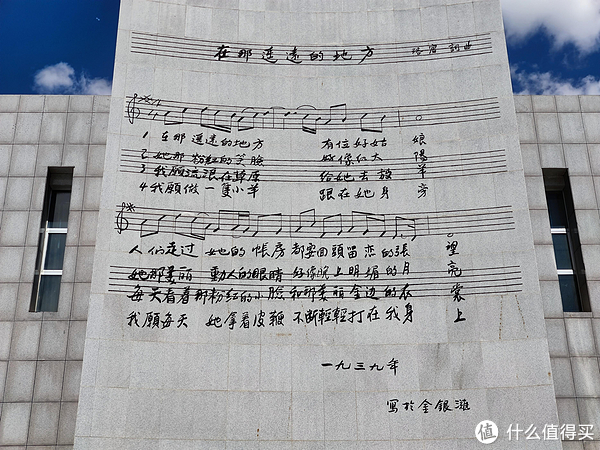 在那遥遠的地方 洛宾 詞曲
1 在那遥遠的地方 有位好姑娘
2 她那粉紅的笑臉 好像红太陽
3 我願流浪在草原 给她去放羊
4 我願做一隻小羊 跟在她身旁
人们走过 她的帳房 都要回頭留恋的張望
她那美丽 動人的眼睛 好像晚上明媚的月亮
每天看着那粉红的小脸和那美丽金边的衣裳
我願每天 她拿着皮鞭 不断輕輕打在我身上
一九三九年
寫於金銀灘
值 什么值得买